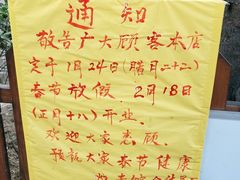 通知
敬告广大顾客本店
定于1月24日(腊月二十二)
春节放假.2月18日
(正月十八)开业.
欢迎大家惠顾.
预祝大家春节健康